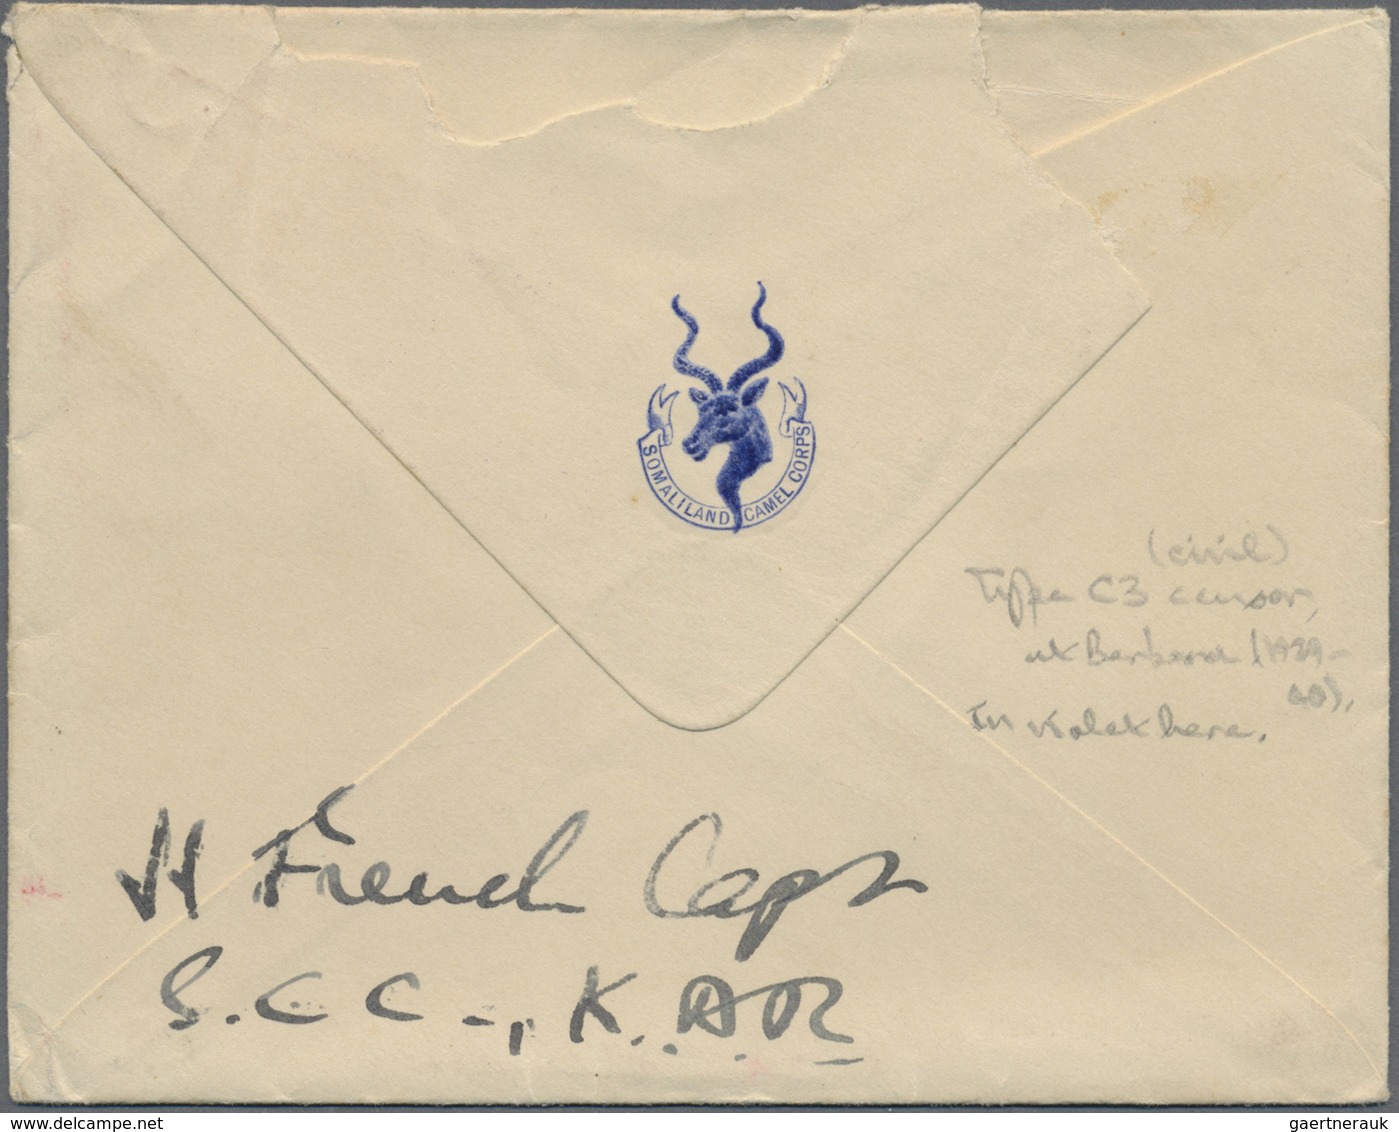 SOMALILAND CAMEL CORPS
(civil)
Type C3 censor,
at Berbera (1939-
40).
In violet here.
H French Capt
S.C.C., K.A.R.
delcampe.net
gaertnerauk